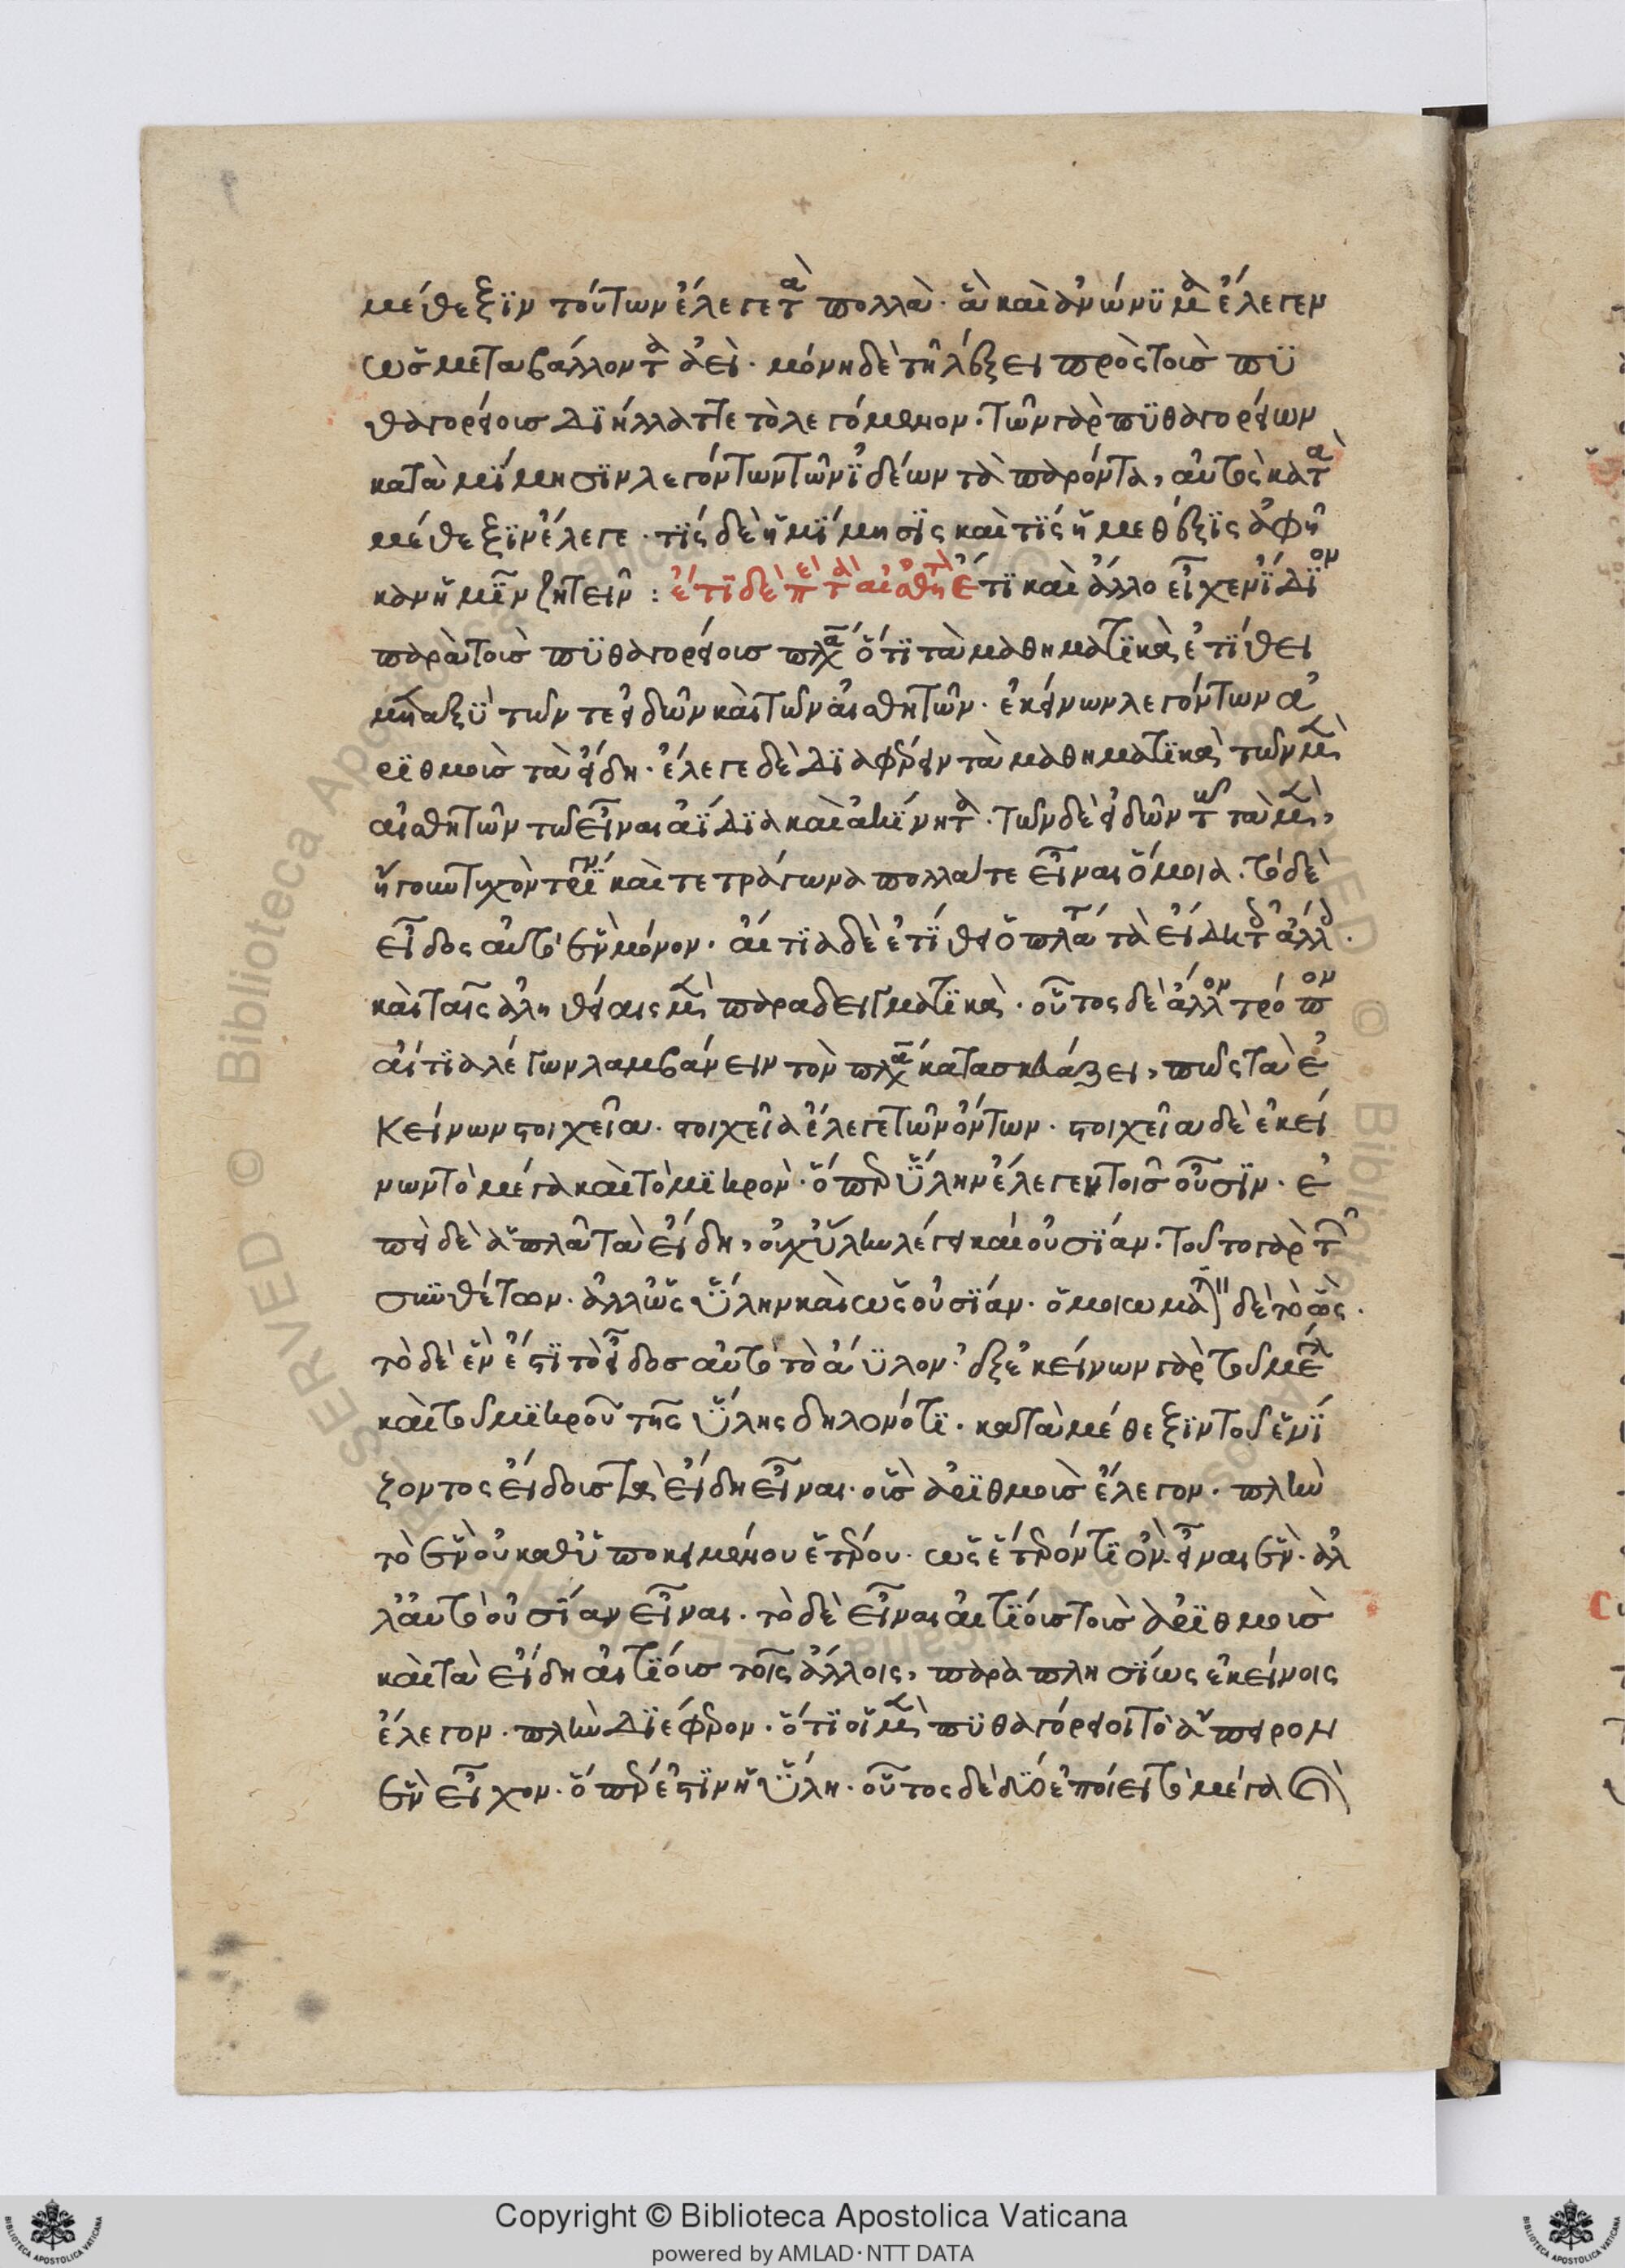 μέθεξϊν τούτων ἔλεγε τὰ πολλὰ· ἃ καὶ ὁνώνϋμα ἔλεγεν
ὡς μεταβάλλοντα ἀεὶ· μόνη δὲ τῆ λέξει πρὸς τοὶς πϋ
θαγορείοις διήλλαττε τὸ λεγόμενον· τῶν γὰρ πϋθαγορείων
κατὰ μΐμησϊν λεγόντων τῶν ϊδέων τὰ παρόντα, αὐτὸς κατὰ
μέθεξϊν ἔλεγε· τίς δὲ ἡ μΐμησϊς καὶ τίς ἡ μεθέξϊς ἀφῆ
καν ἡμῖν ζητεῖν: ἔτι δὲ π τ αἰσθητὰ ἔτϊ καὶ ἄλλο εἶχεν ΐδϊον
παρὰ τοὶς πϋθαγορείοις πλά ὅτϊ τὰ μαθηματϊκὰ ἐτΐθει
μεταξϋ τῶν τε εἰδῶν καὶ τῶν αἰσθητῶν· ἐκείνων λεγόντων ἀ
ρϊθμοὶς τὰ εἴδη· ἔλεγε δὲ διαφέρειν τὰ μαθηματϊκὰ τῶν μὲν
αἰσθητῶν τῶ εἶναι ἀΐδϊα καὶ ἀκΐνητα· τῶν δὲ εἰδῶν τῶ τὰ μὲν,
ἤγουν τυχὸν τρΐγ καὶ τετράγωνα πολλάτε εἶναι ὅμοια· τὸ δὲ
εἶδος αὐτὸ ἓν μόνον· αἴτια δὲ ἐτΐθει ὁ πλάτ τὰ εἴδη τ ἄλλ·
καὶ ταῖς ἀληθείαις μὲν παραδειγματϊκὰ· οὗτος δὲ ἄλλον τρόπον
αἴτϊα λέγων λαμβάνειν τὸν πλά κατασκευάζει, πῶς τὰ ἐ
κείνων στοιχεῖα· στοιχεῖα ἔλεγε τῶν ὄντων· στοιχεῖα δὲ ἐκεί
νων τὸ μέγα καὶ τὸ μϊκρὸν· ὅπερ ὕλην ἔλεγεν τοῖς οὖσϊν· ἐ
πεὶ δὲ ἁπλᾶ τὰ εἴδη, οὐχ ὕλην λέγει καὶ οὐσΐαν· τοῦτο γὰρ τ
σϋνθέτων· ἀλλ' ὡς ὕλην καὶ ὡς οὐσΐαν· ὁμοίωμα δὲ τὸ ὡς·
τὸ δὲ ἓν ἔστϊ τὸ εἶδος αὐτὸ τὸ ἄϋλον· ἐξ ἐκείνων γὰρ τοῦ μεγάλ
καὶ τοῦ μϊκροῦ τῆς ὕλης δηλονότϊ· κατὰ μέθεξϊν τοῦ ἑνΐ
ζοντος εἴδους τὰ εἴδη εἶναι· οὓς ἀρϊθμοὶς ἔλεγον· πλὴν
τὸ ἓν οὐ καθ' ὑποκειμένου ἑτέρου· ὡς ἕτερόν τϊ ὂν εἶναι ἓν· ἀλ
λ' αὐτὸ οὐσΐαν εἶναι· τὸ δὲ εἶναι αἰτΐοις τοὶς ἀρϊθμοὶς
καὶ τὰ εἴδη αἰτΐοις τοῖς ἄλλοις, παραπλησΐως ἐκείνοις
ἔλεγον· πλὴν δϊέφερον· ὅτϊ οἱ μὲν πϋθαγόρειοι τὸ ἄπειρον
ἓν εἶχον· ὅπερ ἐστϊν ἡ ὕλη· οὗτος δὲ δύο ἐποίει τὸ μέγα καὶ
Copyright © Biblioteca Apostolica Vaticana
powered by AMLAD·NTT DATA